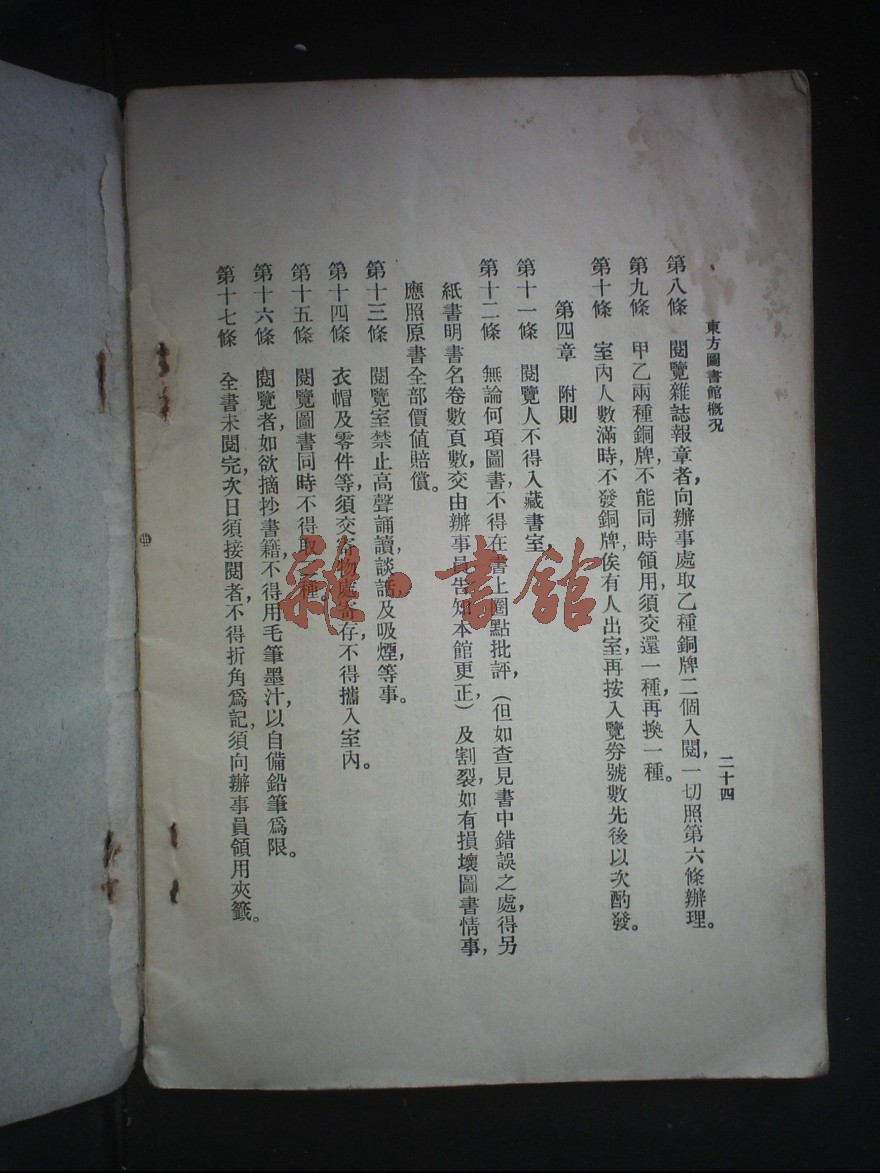 東方圖書館概況
二十四
第八條　閱覽雜誌報章者,向辦事處取乙種銅牌二個入閱,一切照第六條辦理。
第九條　甲乙兩種銅牌,不能同時領用,須交還一種,再換一種。
第十條　室內人數滿時,不發銅牌,俟有人出室,再按入覽券號數先後以次酌發。
第四章　附則
第十一條　閱覽人不得入藏書室,
第十二條　無論何項圖書,不得在書上圈點批評,(但如查見書中錯誤之處,得另
紙書明書名卷數頁數,交由辦事員告知本館更正)及割裂,如有損壞圖書情事,
應照原書全部價值賠償。
第十三條　閱覽室禁止高聲誦讀,談話,及吸煙,等事。
第十四條　衣帽及零件等,須交寄物處寄存,不得攜入室內。
第十五條　閱覽圖書同時不得取二種。
第十六條　閱覽者,如欲摘抄書籍,不得用毛筆墨汁,以自備鉛筆爲限。
第十七條　全書未閱完,次日須接閱者,不得折角爲記,須向辦事員領用夾籤。
雜·書館